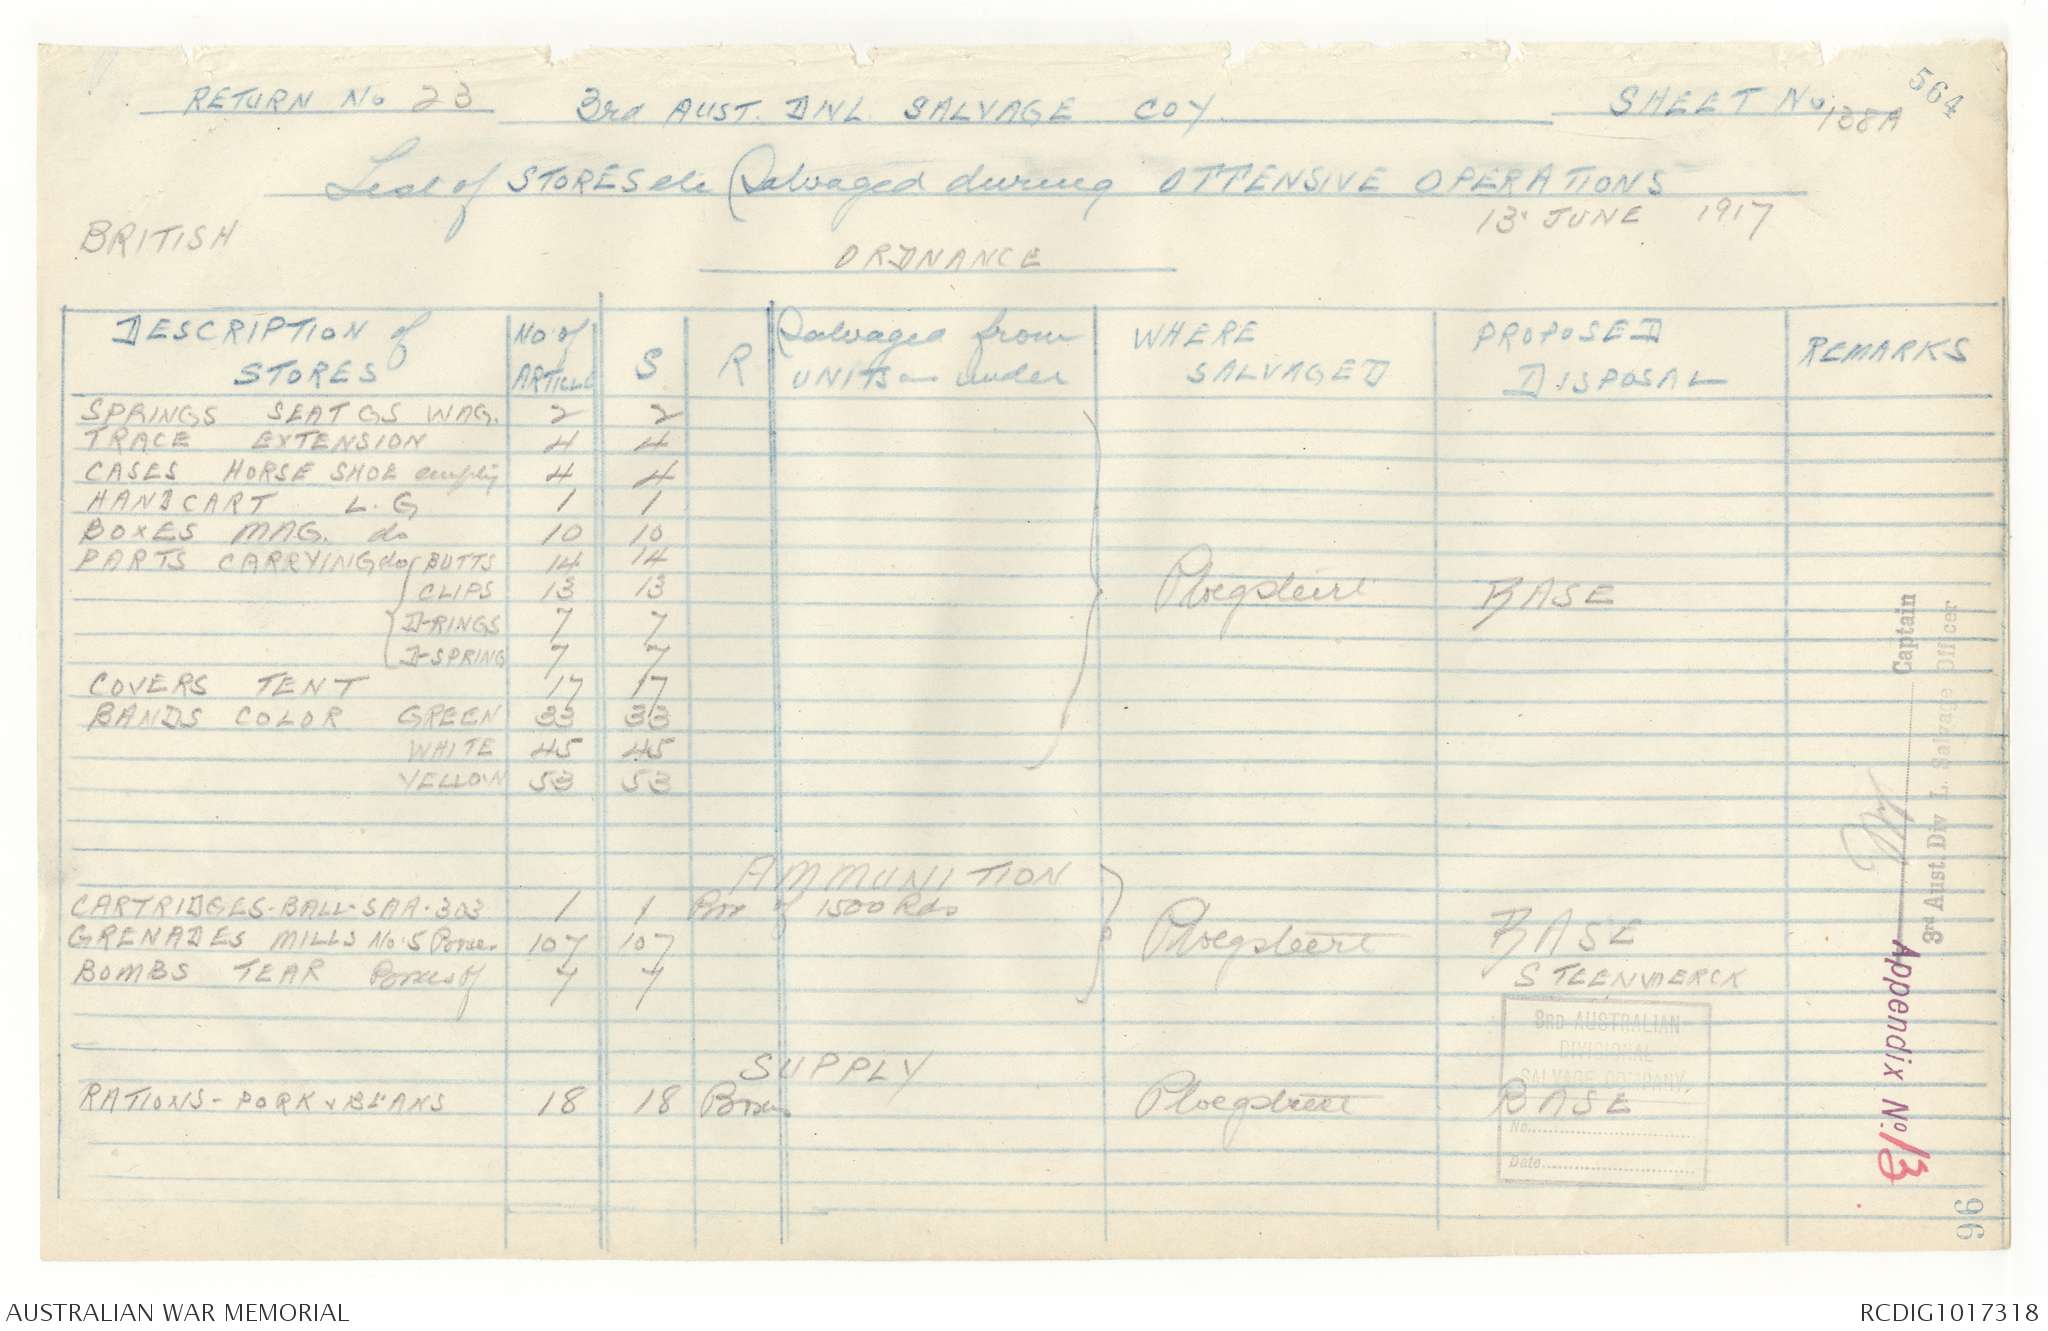 564
RETURN No 23 3rd AUST. DNL SALVAGE COY SHEET No 138A
List of STORES etc Salvaged during OFFENSIVE OPERATIONS
13 JUNE 1917
BRITISH
ORDNANCE
DESCRIPTION of STORES No of ARTICLE S R Salvaged from UNITS as under WHERE SALVAGED PROPOSED DISPOSAL REMARKS
SPRINGS SEAT GS WAG. 2 2
TRACE EXTENSION 4 4
CASES HORSE SHOE empty 4 4
HANDCART L.G 1 1
BOXES MAG. do 10 10
PARTS CARRYING do BUTTS 14 14
CLIPS 13 13 Ploegsteert BASE
D-RINGS 7 7
D-SPRING 7 7
COVERS TENT 17 17
BANDS COLOR GREEN 33 33
WHITE 45 45
YELLOW 53 53
AMMUNITION
CARTRIDGES-BALL-SAA-303 1 1 Box of 1500 Rds
GRENADES MILLS No.5 Boxes 107 107 Ploegsteert BASE
BOMBS TEAR Boxes of 7 7 STEENWERCK
SUPPLY
RATIONS - PORK & BEANS 18 18 Boxes Ploegsteert BASE
3RD AUSTRALIAN
DIVISIONAL
SALVAGE COMPANY.
No.
Date
Captain
3rd Aust. Div L. Salvage Officer
Appendix No. 13
96
AUSTRALIAN WAR MEMORIAL
RCDIG1017318